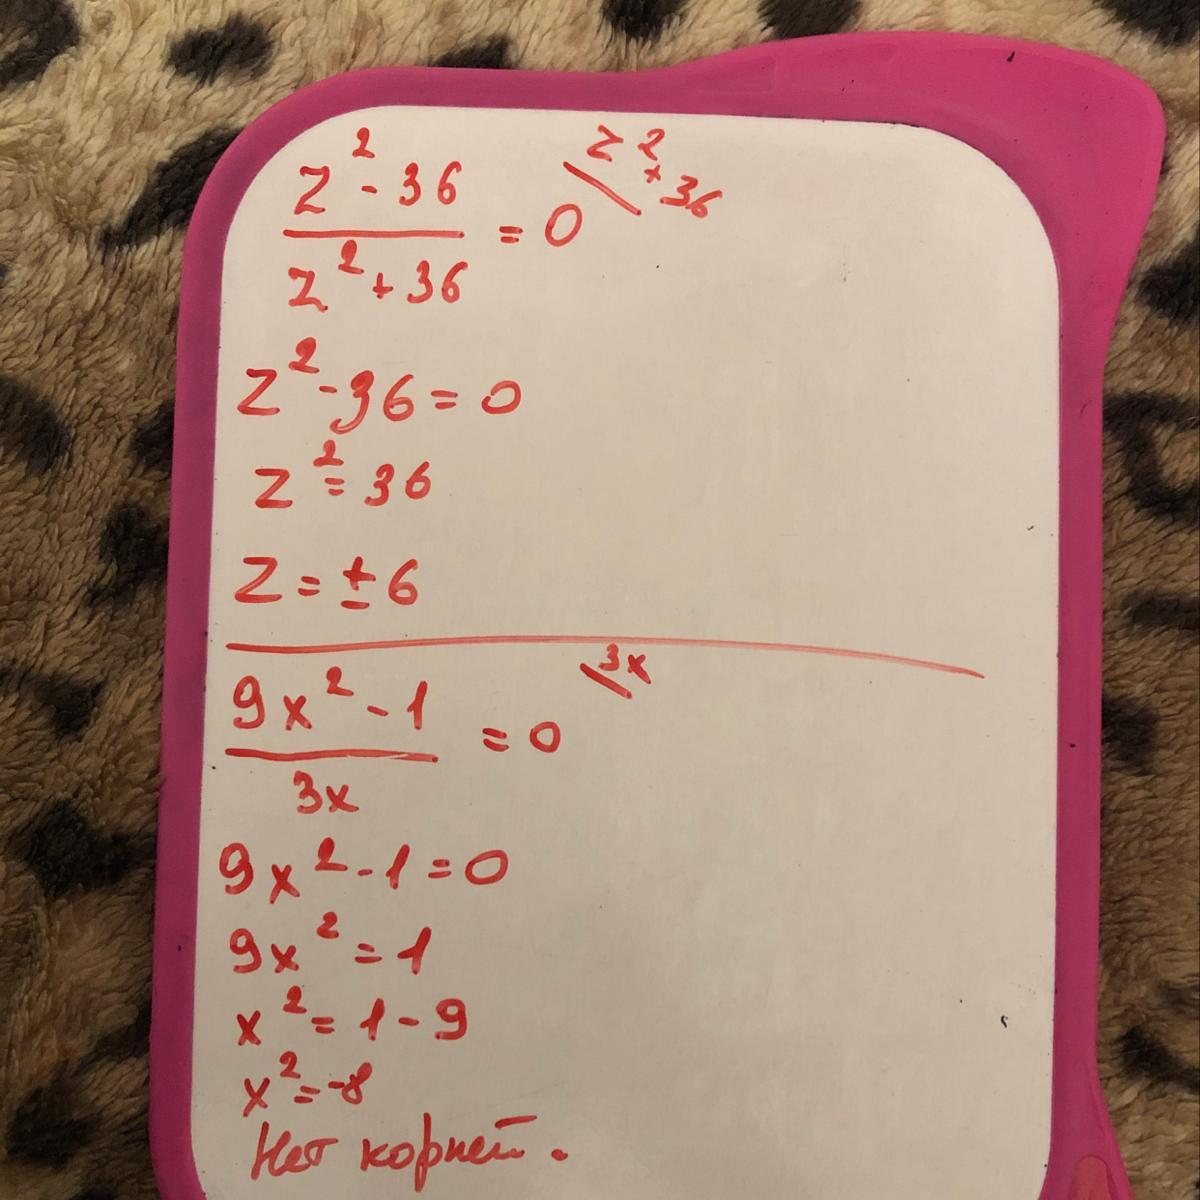 z² - 36
/ z² + 36 = 0 \ z² + 36
z² - 36 = 0
z² = 36
z = ± 6
9x² - 1
/ 3x = 0 \ 3x
9x² - 1 = 0
9x² = 1
x² = 1 - 9
x² = -8
Нет корней.